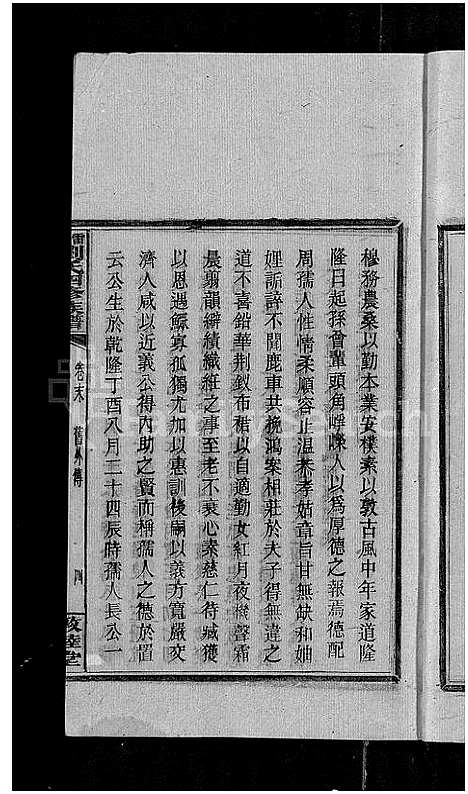 穆務農桑以勤本業安樸素以敦古風中年家道隆
隆日起孫曾輩頭角崢嶸人以爲厚德之報焉德配
周孺人性情柔順容止溫恭孝姑章旨甘無缺和妯
娌詬誶不聞鹿車共挽鴻案相莊於夫子得無違之
道不喜鉛華荆釵布裙以自適勤女紅月夜機聲霜
晨翦韻辦績織紝之事至老不衰心素慈仁待臧獲
以恩遇鰥寡孤獨尤加以惠訓後嗣以義方寬嚴交
濟人咸以近義公得內助之賢而稱孺人之德於置
云公生於乾隆丁酉八月二十四辰時孺人長公一
劉氏四修族譜
卷末
舊外傳
四
敦睦堂